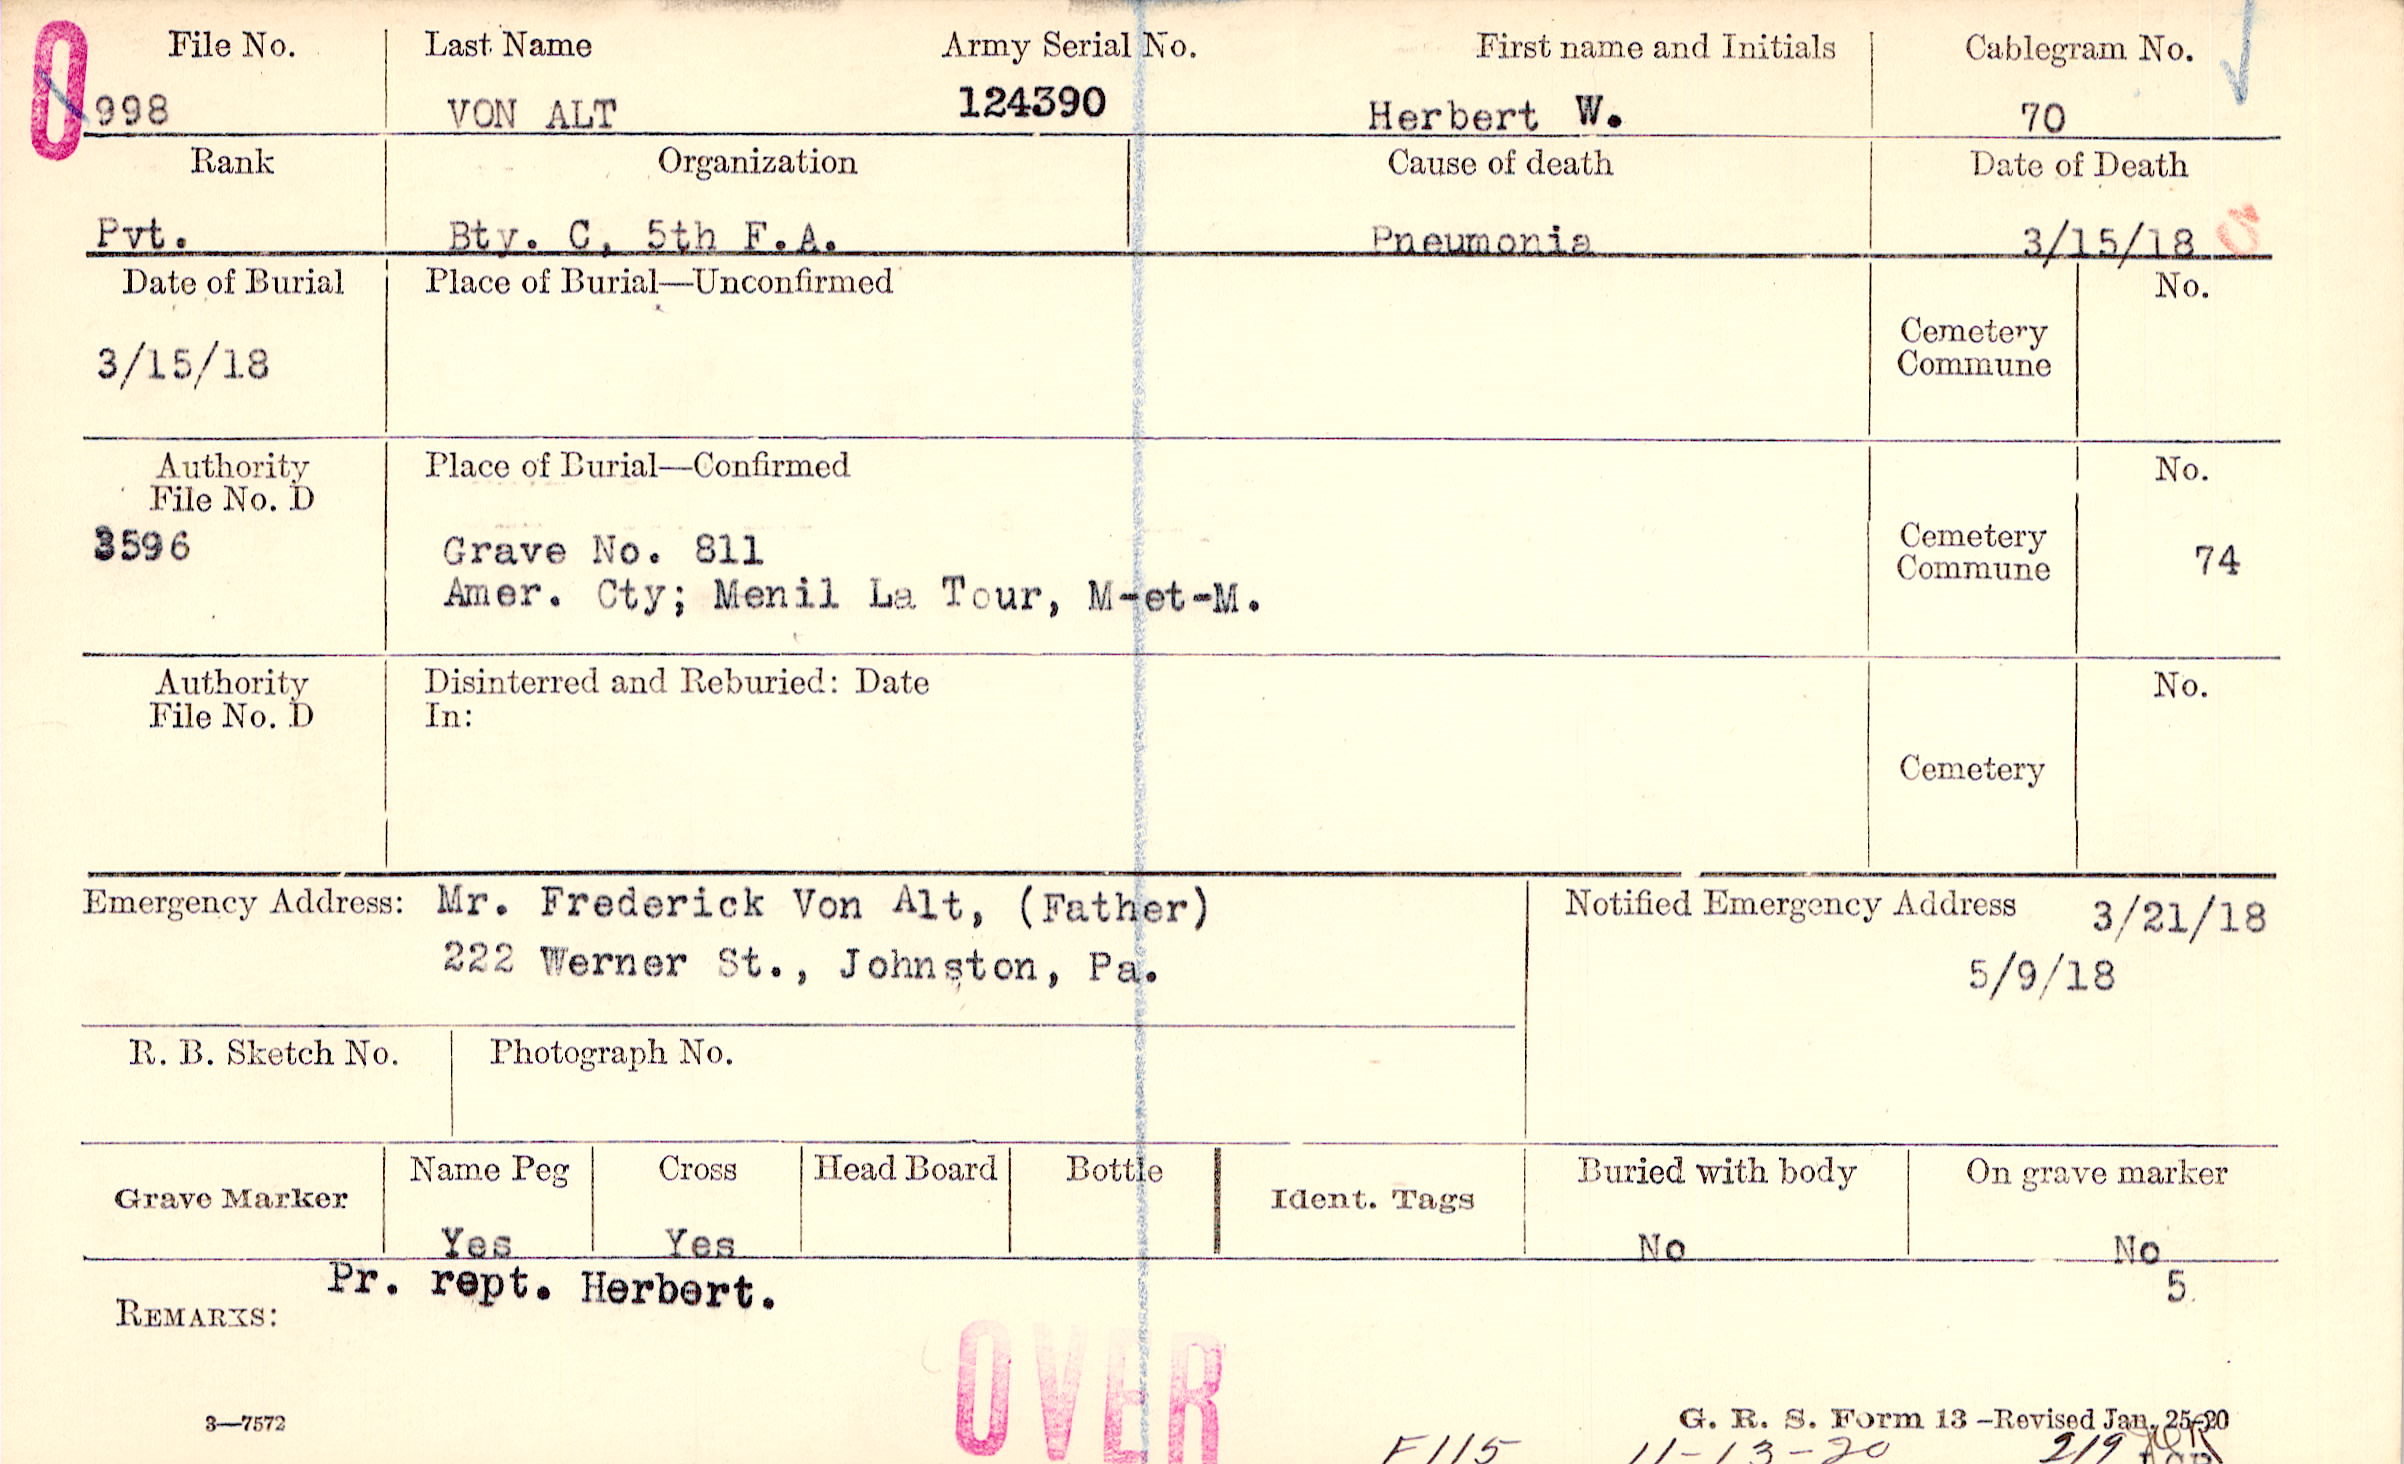 O
File No. Last Name Army Serial No. First name and Initials Cablegram No.
998 VON ALT 124390 Herbert W. 70
Rank Organization Cause of death Date of Death
Pvt. Bty. C, 5th F.A. Pneumonia 3/15/18
Date of Burial Place of Burial—Unconfirmed No.
Cemetery
Commune
3/15/18
Authority Place of Burial—Confirmed No.
File No. D
3596 Grave No. 811 Cemetery
Commune 74
Amer. Cty; Menil La Tour, M-et-M.
Authority Disinterred and Reburied: Date No.
File No. D In:
Cemetery
Emergency Address: Mr. Frederick Von Alt, (Father) Notified Emergency Address 3/21/18
222 Werner St., Johnston, Pa. 5/9/18
R. B. Sketch No. Photograph No.
Grave Marker Name Peg Cross Head Board Bottle Ident. Tags Buried with body On grave marker
Yes Yes No No
Pr. rept. Herbert. 5
REMARKS:
OVER
3—7572 G. R. S. Form 13—Revised Jan. 25-20
F115 11-13-20 219